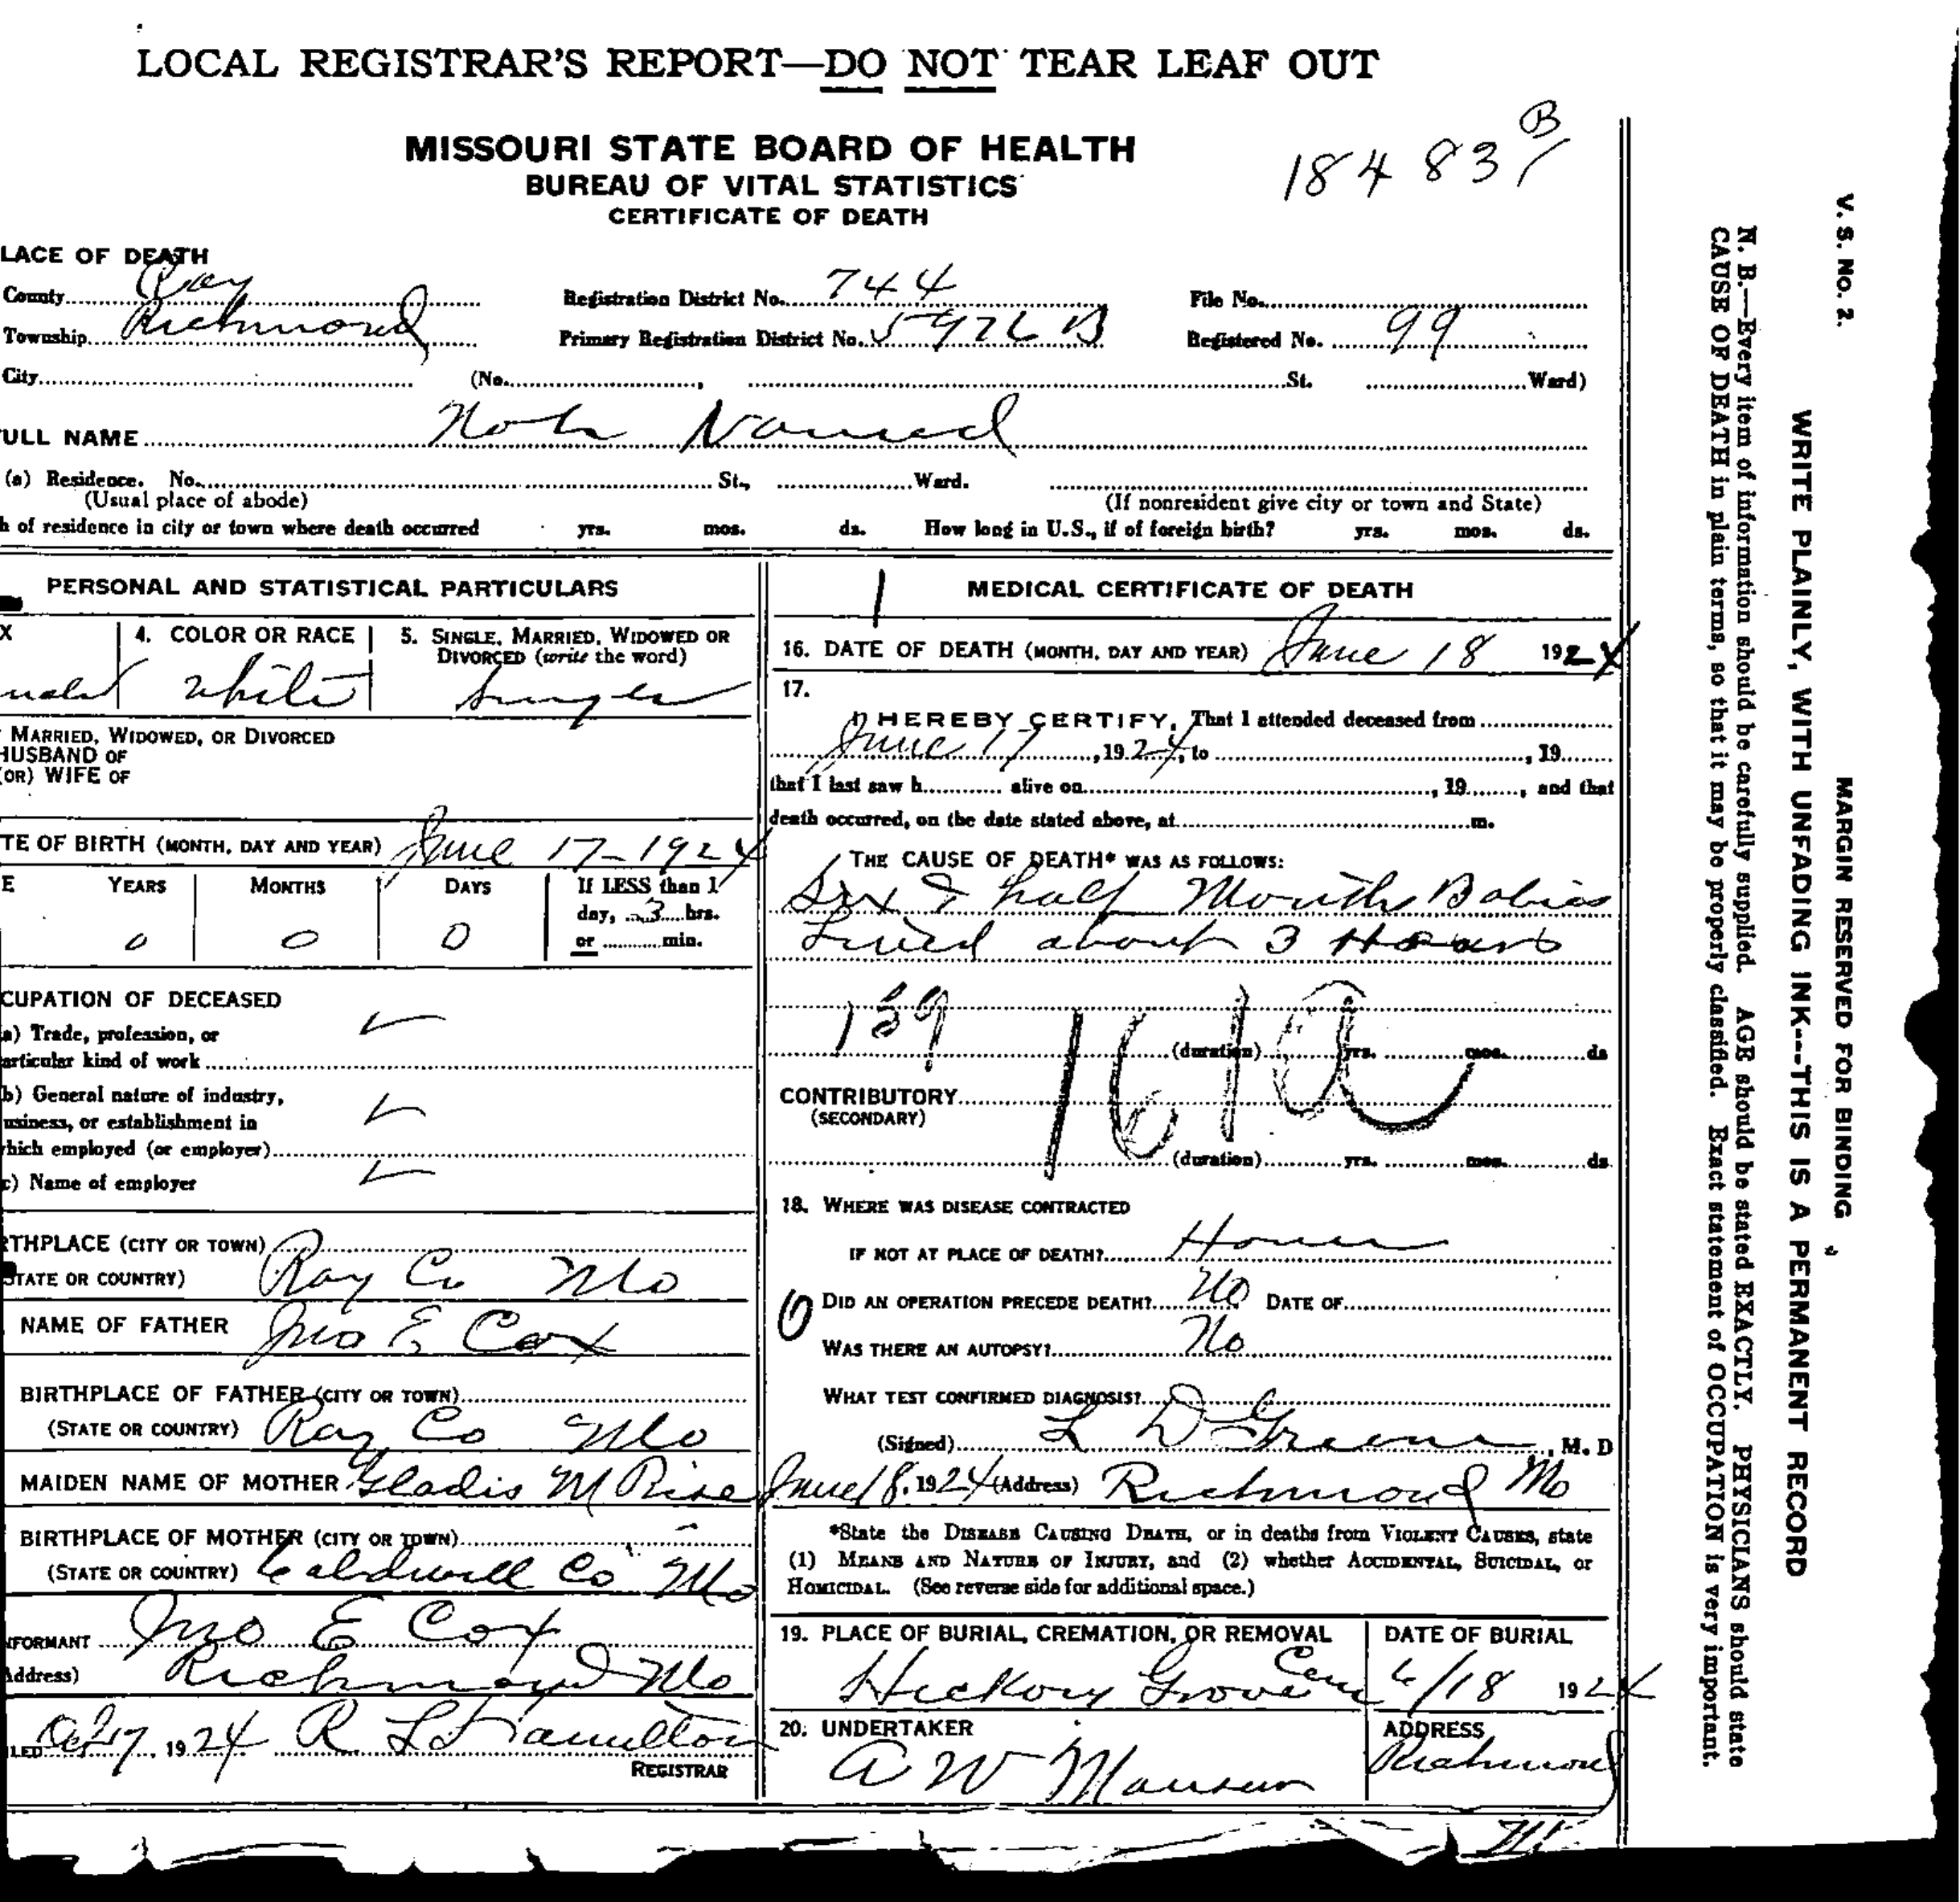 LOCAL REGISTRAR'S REPORT—DO NOT TEAR LEAF OUT
MISSOURI STATE BOARD OF HEALTH
BUREAU OF VITAL STATISTICS
CERTIFICATE OF DEATH
18483 B
LACE OF DEATH
County Ray Registration District No. 744 File No.
Township Richmond Primary Registration District No. 5976 B Registered No. 99
City (No. , St. Ward)
ULL NAME Not Named
(a) Residence. No. St., Ward.
(Usual place of abode) (If nonresident give city or town and State)
h of residence in city or town where death occurred yrs. mos. ds. How long in U.S., if of foreign birth? yrs. mos. ds.
PERSONAL AND STATISTICAL PARTICULARS
X 4. COLOR OR RACE 5. SINGLE, MARRIED, WIDOWED OR
DIVORCED (write the word)
white Single
MARRIED, WIDOWED, OR DIVORCED
HUSBAND OF
(OR) WIFE OF
TE OF BIRTH (MONTH, DAY AND YEAR) June 17-1924
E YEARS MONTHS DAYS If LESS than 1
day, 3 hrs.
or min.
0 0 0
CUPATION OF DECEASED
a) Trade, profession, or
articular kind of work
b) General nature of industry,
usiness, or establishment in
hich employed (or employer)
c) Name of employer
RTHPLACE (CITY OR TOWN)
STATE OR COUNTRY) Ray Co Mo
NAME OF FATHER Jno E Cox
BIRTHPLACE OF FATHER (CITY OR TOWN)
(STATE OR COUNTRY) Ray Co Mo
MAIDEN NAME OF MOTHER Gladis M
BIRTHPLACE OF MOTHER (CITY OR TOWN)
(STATE OR COUNTRY) Caldwell Co Mo
NFORMANT Jno E Cox
Address) Richmond Mo
LED 1924 R L Hamilton
REGISTRAR
1
MEDICAL CERTIFICATE OF DEATH
16. DATE OF DEATH (MONTH, DAY AND YEAR) June 18 1924
17.
I HEREBY CERTIFY, That I attended deceased from
June 17, 1924, to , 19
that I last saw h alive on , 19 , and that
death occurred, on the date stated above, at m.
THE CAUSE OF DEATH* WAS AS FOLLOWS:
Six & half Months Babies
Lived about 3 Hours
159 161a
(duration) yrs. mos. ds
CONTRIBUTORY
(SECONDARY)
(duration) yrs. mos. ds
18. WHERE WAS DISEASE CONTRACTED
IF NOT AT PLACE OF DEATH? Home
DID AN OPERATION PRECEDE DEATH? No DATE OF
WAS THERE AN AUTOPSY? No
WHAT TEST CONFIRMED DIAGNOSIS?
(Signed) L D Greene, M. D
June 18, 1924 (Address) Richmond Mo
*State the DISEASE CAUSING DEATH, or in deaths from VIOLENT CAUSES, state
(1) MEANS AND NATURE OF INJURY, and (2) whether ACCIDENTAL, SUICIDAL, or
HOMICIDAL. (See reverse side for additional space.)
19. PLACE OF BURIAL, CREMATION, OR REMOVAL DATE OF BURIAL
Hickory Grove Cem 6/18 1924
20. UNDERTAKER ADDRESS
A W Richmond
V. S. No. 2.
MARGIN RESERVED FOR BINDING
WRITE PLAINLY, WITH UNFADING INK---THIS IS A PERMANENT RECORD
N. B.—Every item of information should be carefully supplied. AGE should be stated EXACTLY. PHYSICIANS should state
CAUSE OF DEATH in plain terms, so that it may be properly classified. Exact statement of OCCUPATION is very important.